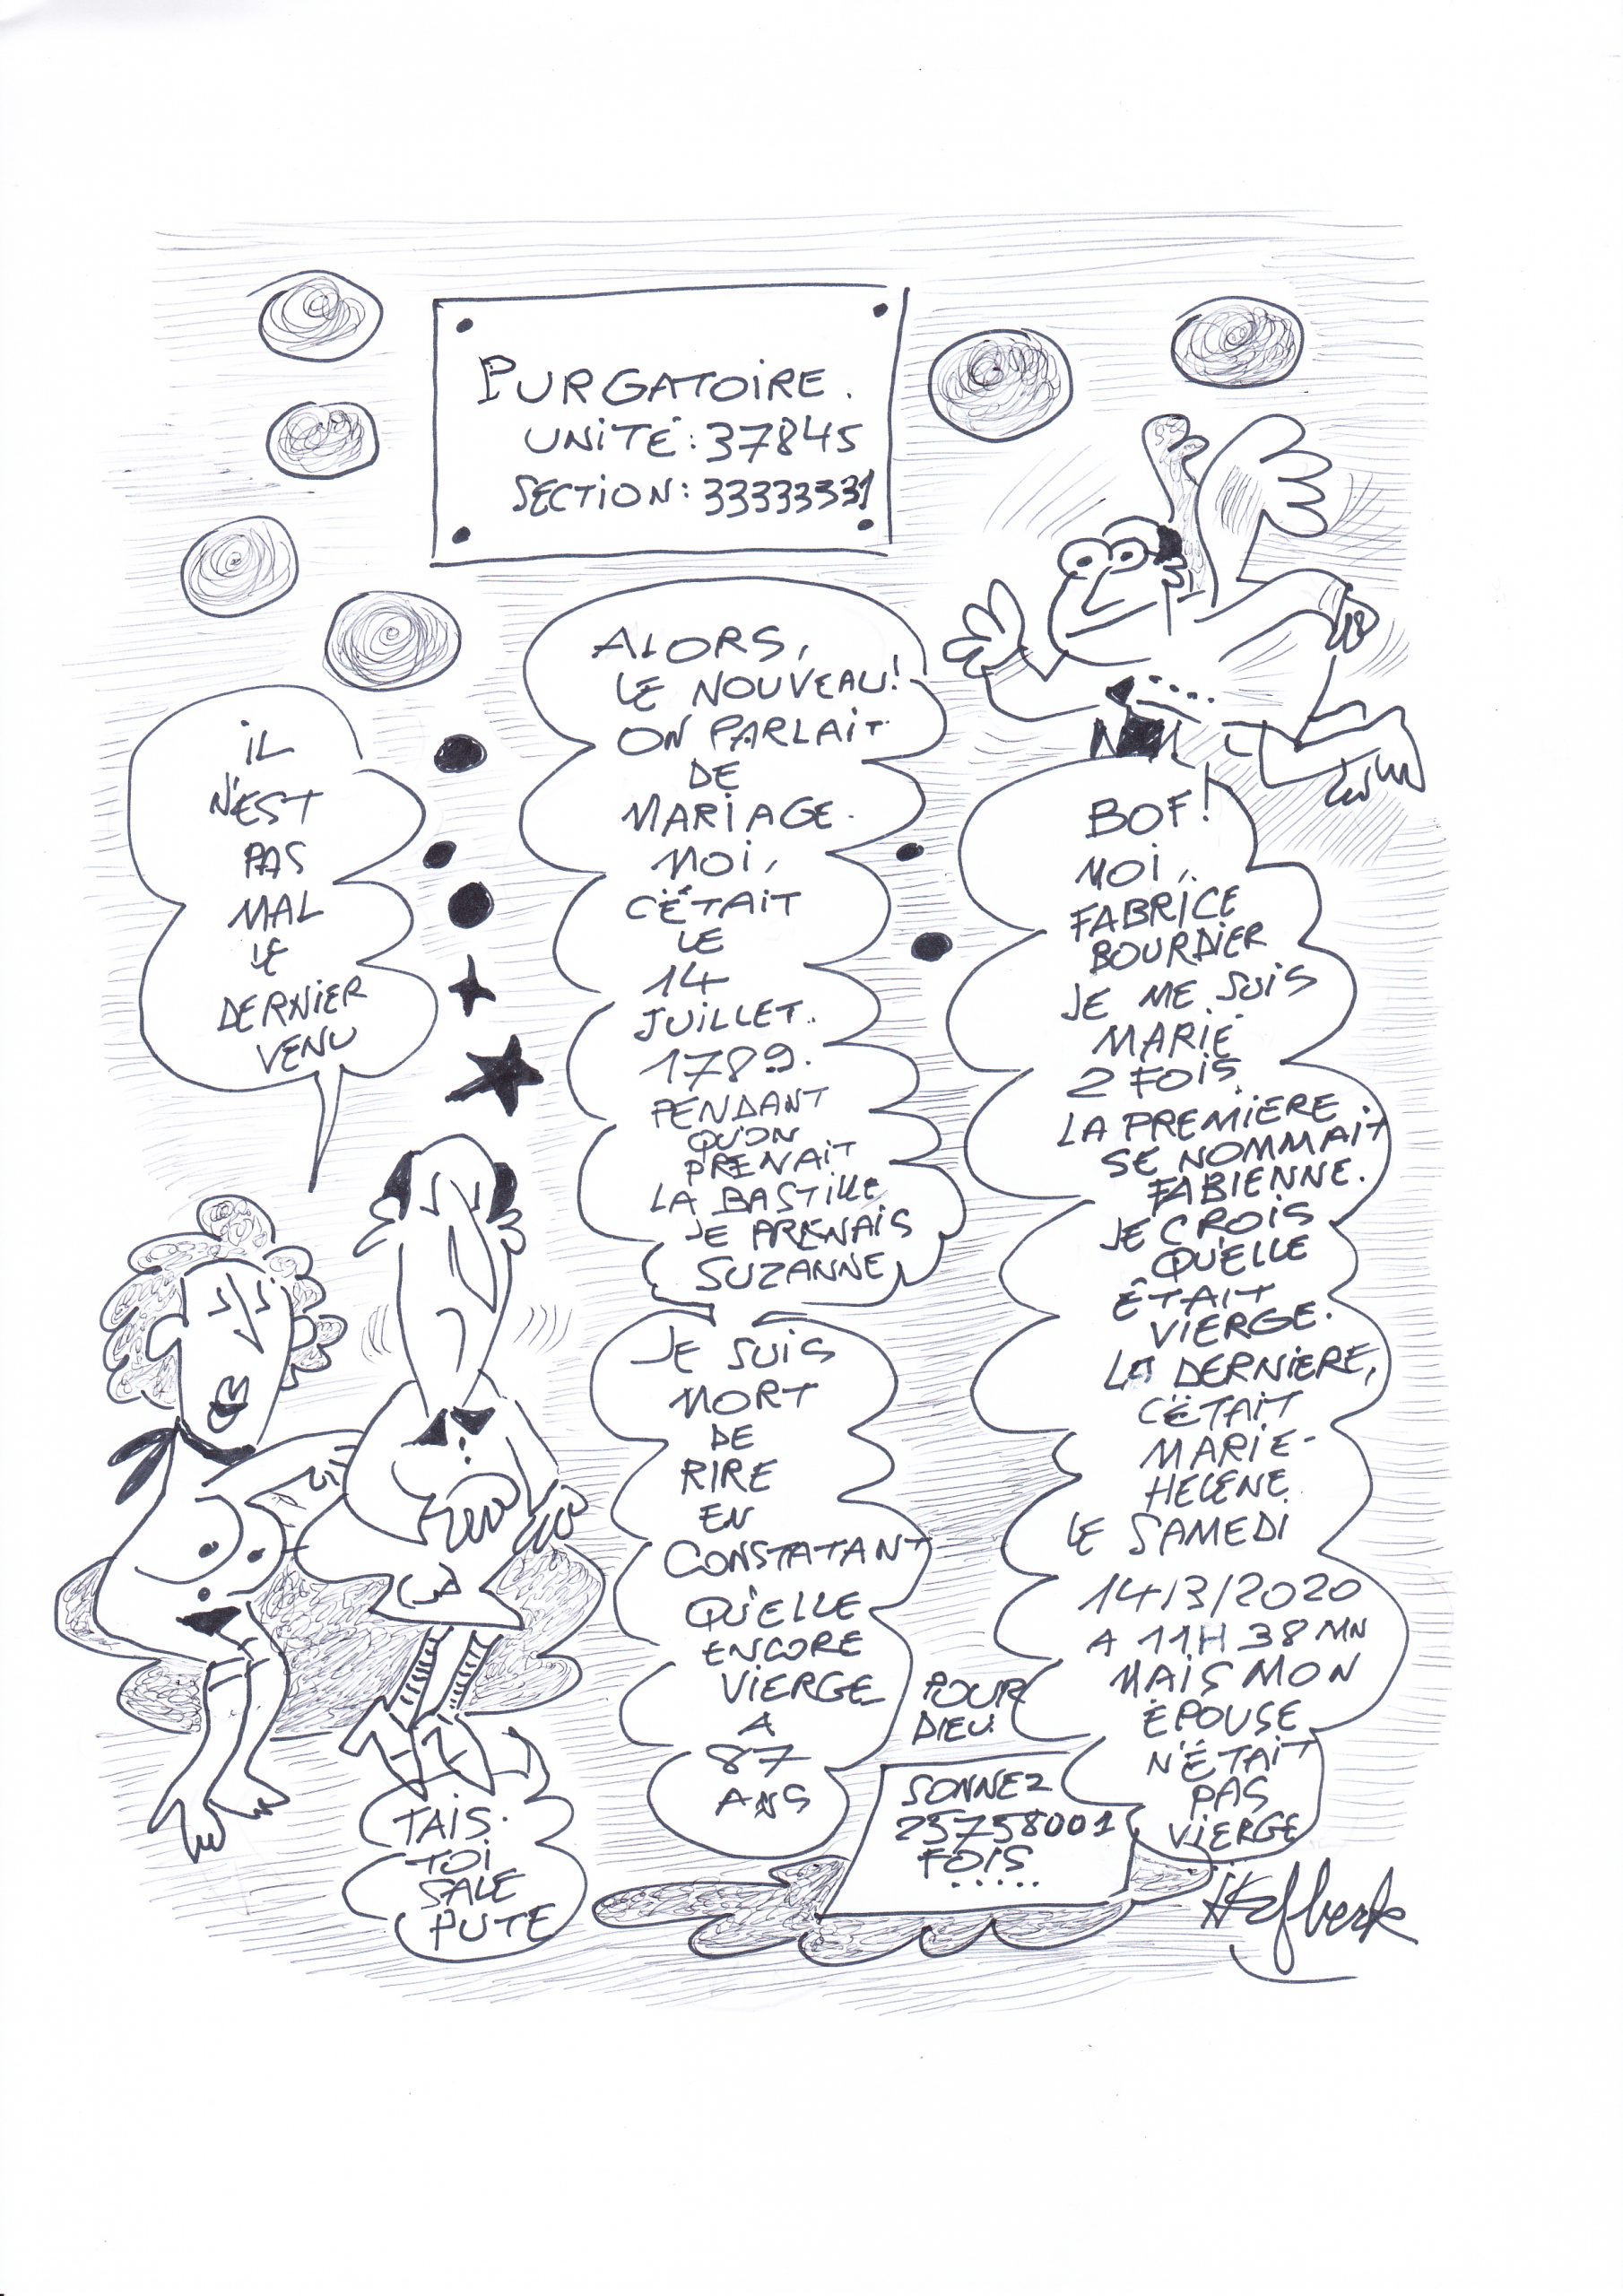 PURGATOIRE.
UNITÉ: 37845
SECTION: 33333331
IL
N'EST
PAS
MAL
LE
DERNIER
VENU
ALORS,
LE NOUVEAU!
ON PARLAIT
DE
MARIAGE.
MOI,
C'ÉTAIT
LE
14
JUILLET.
1789.
PENDANT
QU'ON
PRENAIT
LA BASTILLE
JE PRENAIS
SUZANNE
JE SUIS
MORT
DE
RIRE
EN
CONSTATANT
QU'ELLE
ENCORE
VIERGE
A
87
ANS
BOF!
MOI,
FABRICE
BOURDIER
JE ME SUIS
MARIÉ
2 FOIS.
LA PREMIERE
SE NOMMAIT
FABIENNE.
JE CROIS
QU'ELLE
ÊTAIT
VIERGE.
LA DERNIERE,
C'ÉTAIT
MARIE-
HELENE
LE SAMEDI
14/3/2020
A 11H 38 MN
MAIS MON
ÉPOUSE
N'ÉTAIT
PAS
VIERGE
TAIS-
TOI
SALE
PUTE
POUR
DIEU
SONNEZ
25758001
FOIS.....